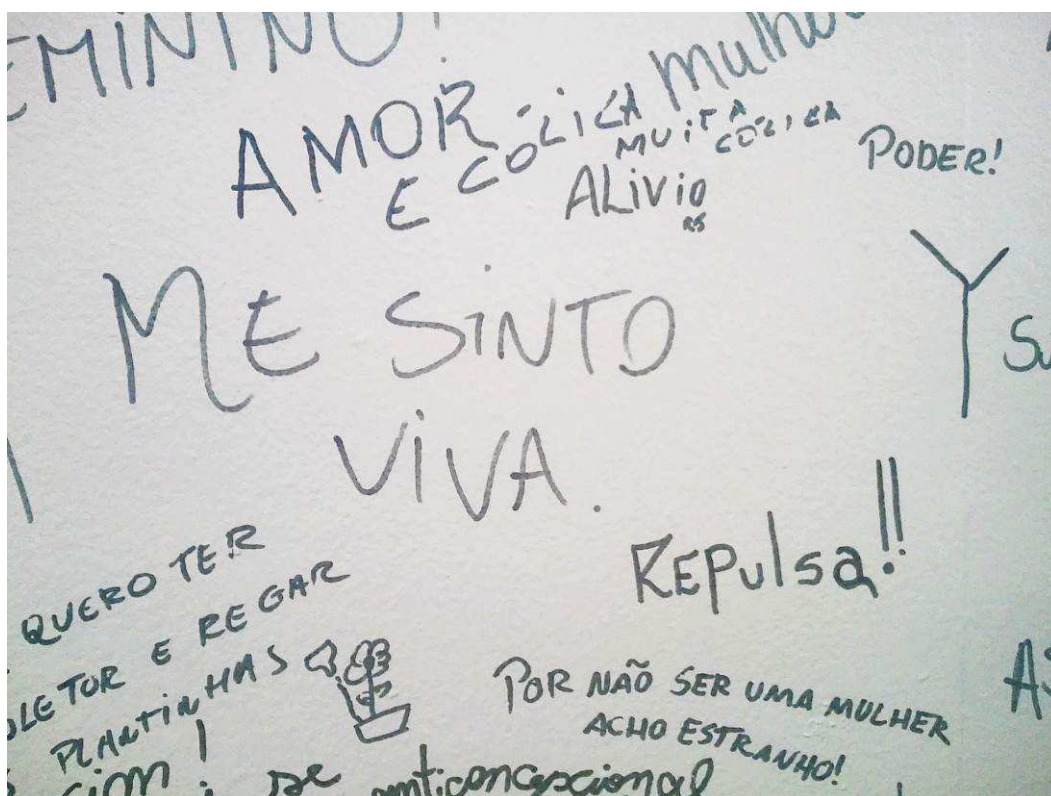 EMININO!
AMOR
E CÓLICA
mulher
MUITA CÓLICA
ALiViO
RS
PODER!
ME SiNTO
ViVA.
Y
Su
REPulsa!!
QUERO TER
OLETOR E REGAR
PLANTiNHAS
POR NÃO SER UMA MULHER
ACHO ESTRANHO!
sim! se anticoncepcional